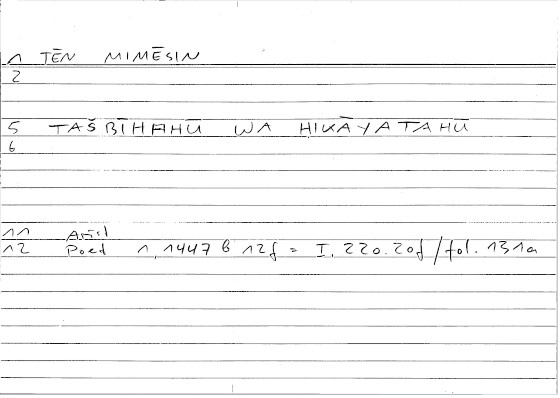 1 TĒN MIMĒSIN
2
5 TAŠBĪHAHŪ WA HIKĀYATAHŪ
6
11 Arist
12 Poed 1, 1447 b 12f = I, 220.20f / fol. 131a